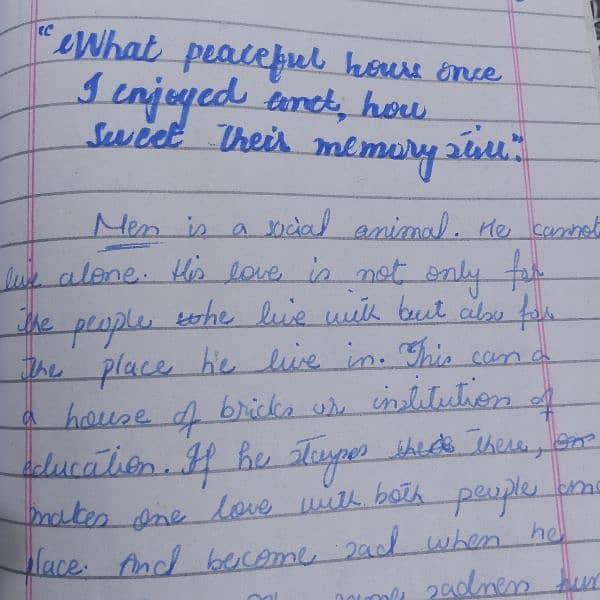 "What peaceful hours once
I enjoyed and, how
sweet their memory still".
Men is a social animal. He cannot
live alone. His love is not only for
the people he live with but also for
the place he live in. This can a
a house of bricks or institution of
education. If he stayes there,
makes one love with both people
place. And become sad when he
sadness